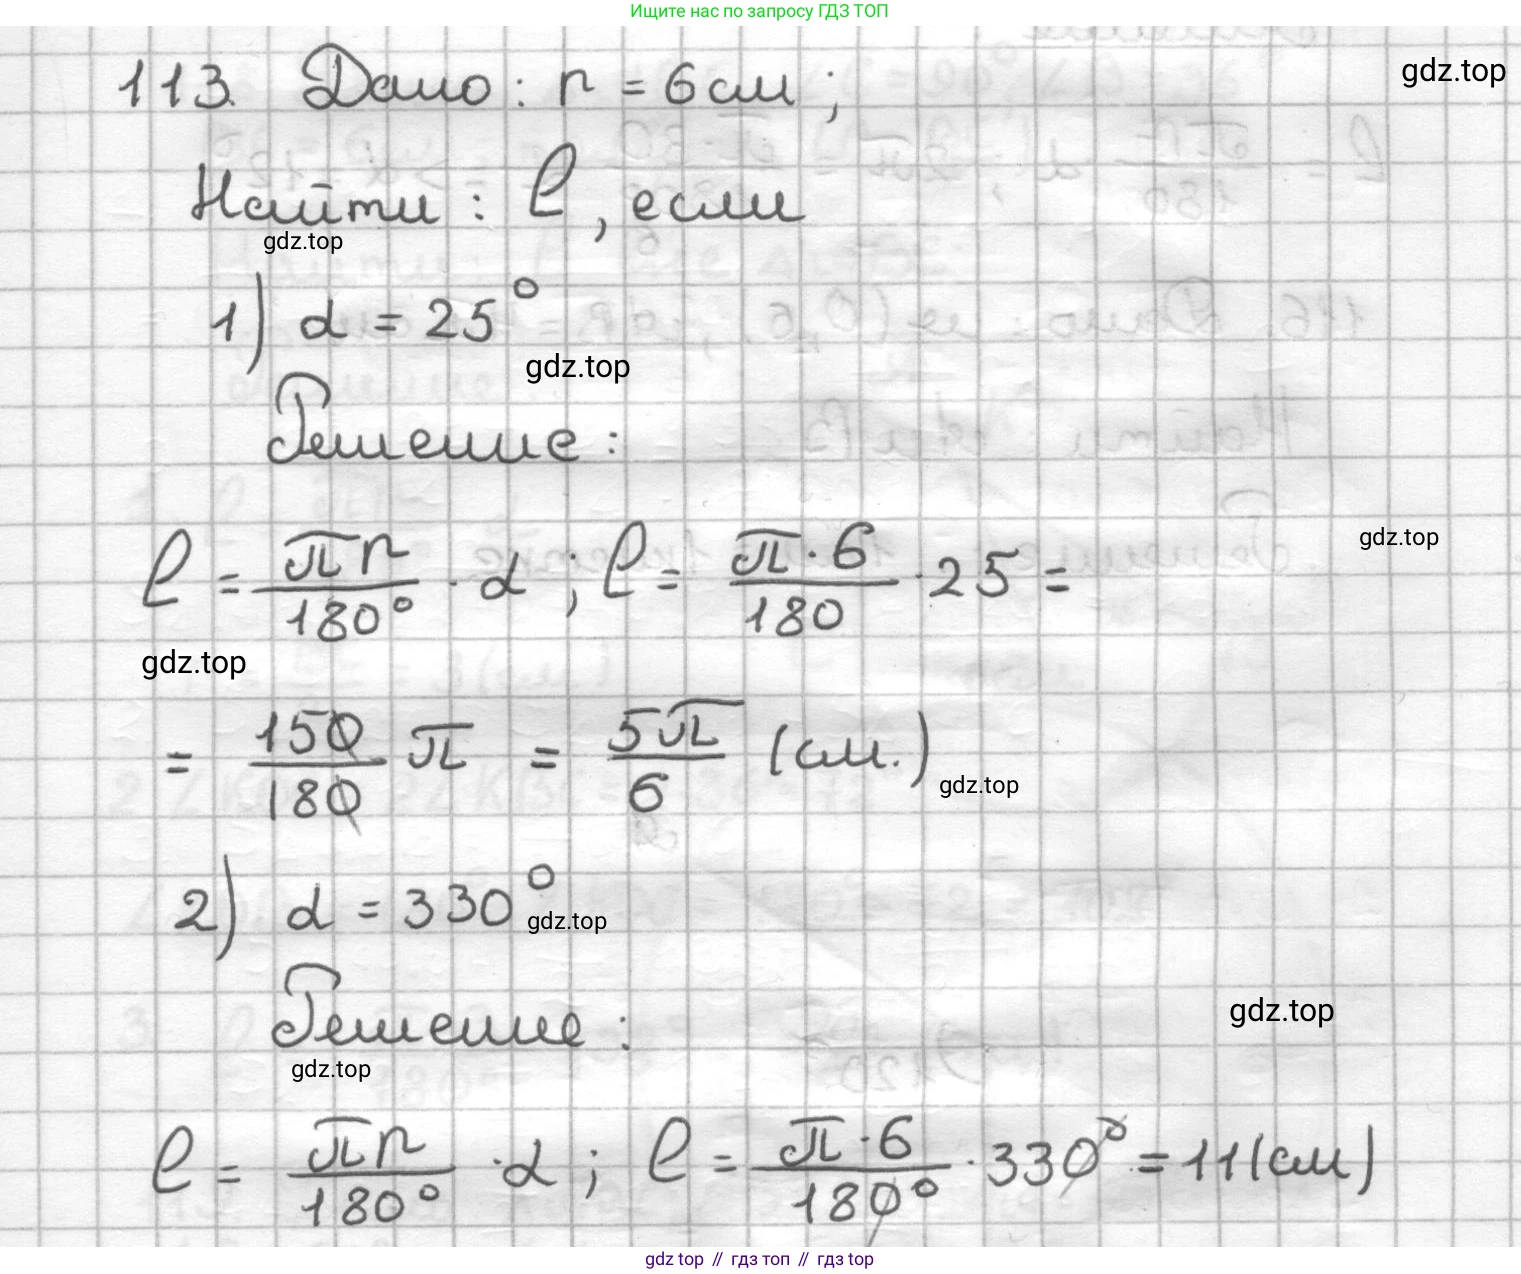 Ищите нас по запросу ГДЗ ТОП
113. Дано: r = 6 см;
gdz.top
Найти: l, если
gdz.top
1) α = 25°
gdz.top
Решение:
l = πr/180° · α; l = π·6/180 · 25 =
gdz.top
gdz.top
= 150/180 π = 5π/6 (см.)
gdz.top
2) α = 330°
gdz.top
Решение:
gdz.top
gdz.top
l = πr/180° · α; l = π·6/180° · 330° = 11 (см)
gdz top // гдз топ // гдз top